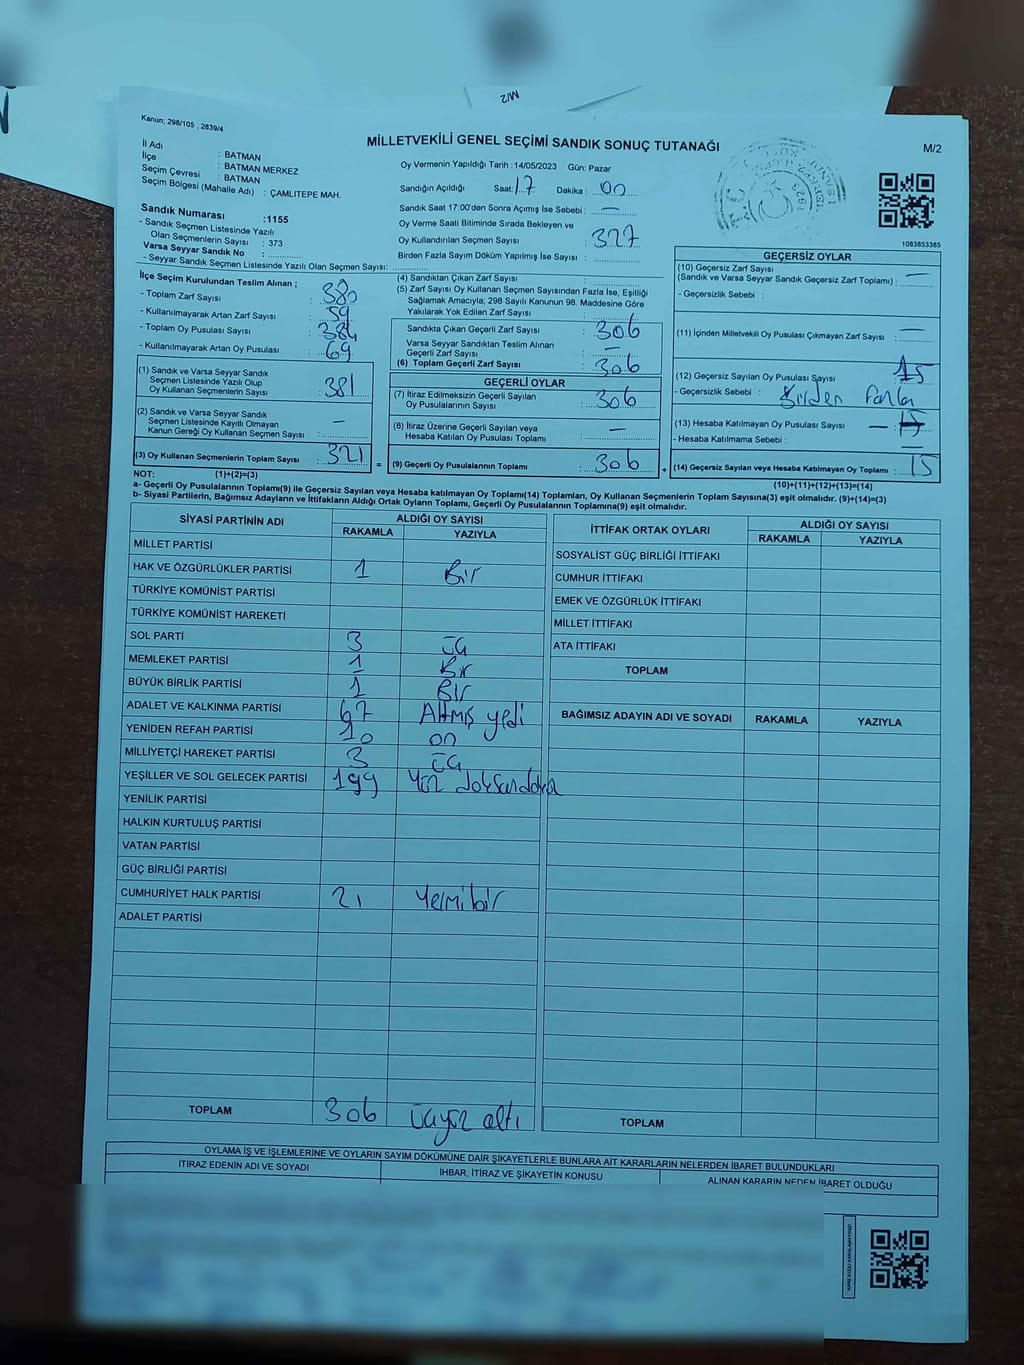 M/2
Kanun; 298/105 , 2839/4
MİLLETVEKİLİ GENEL SEÇİMİ SANDIK SONUÇ TUTANAĞI
M/2
İl Adı : BATMAN
İlçe : BATMAN MERKEZ
Seçim Çevresi : BATMAN
Seçim Bölgesi (Mahalle Adı) : ÇAMLITEPE MAH.
Sandık Numarası :1155
- Sandık Seçmen Listesinde Yazılı
Olan Seçmenlerin Sayısı : 373
Varsa Seyyar Sandık No :
- Seyyar Sandık Seçmen Listesinde Yazılı Olan Seçmen Sayısı:
Oy Vermenin Yapıldığı Tarih : 14/05/2023 Gün: Pazar
Sandığın Açıldığı Saat: 17 Dakika : 00
Sandık Saat 17:00'den Sonra Açımış İse Sebebi : —
Oy Verme Saati Bitiminde Sırada Bekleyen ve
Oy Kullandırılan Seçmen Sayısı : 327
Birden Fazla Sayım Döküm Yapılmış İse Sayısı :
1083853385
İlçe Seçim Kurulundan Teslim Alınan ;
- Toplam Zarf Sayısı : 380
- Kullanılmayarak Artan Zarf Sayısı : 59
- Toplam Oy Pusulası Sayısı : 384
- Kullanılmayarak Artan Oy Pusulası : 69
(1) Sandık ve Varsa Seyyar Sandık
Seçmen Listesinde Yazılı Olup
Oy Kullanan Seçmenlerin Sayısı : 381
(2) Sandık ve Varsa Seyyar Sandık
Seçmen Listesinde Kayıtlı Olmayan
Kanun Gereği Oy Kullanan Seçmen Sayısı : —
(3) Oy Kullanan Seçmenlerin Toplam Sayısı : 321
(1)+(2)=(3)
(4) Sandıktan Çıkan Zarf Sayısı :
(5) Zarf Sayısı Oy Kullanan Seçmen Sayısından Fazla İse, Eşitliği
Sağlamak Amacıyla; 298 Sayılı Kanunun 98. Maddesine Göre
Yakılarak Yok Edilen Zarf Sayısı :
Sandıkta Çıkan Geçerli Zarf Sayısı : 306
Varsa Seyyar Sandıktan Teslim Alınan
Geçerli Zarf Sayısı : —
(6) Toplam Geçerli Zarf Sayısı : 306
GEÇERLİ OYLAR
(7) İtiraz Edilmeksizin Geçerli Sayılan
Oy Pusulalarının Sayısı : 306
(8) İtiraz Üzerine Geçerli Sayılan veya
Hesaba Katılan Oy Pusulası Toplamı : —
= (9) Geçerli Oy Pusulalarının Toplamı : 306 +
GEÇERSİZ OYLAR
(10) Geçersiz Zarf Sayısı
(Sandık ve Varsa Seyyar Sandık Geçersiz Zarf Toplamı) : —
- Geçersizlik Sebebi :
(11) İçinden Milletvekili Oy Pusulası Çıkmayan Zarf Sayısı : —
(12) Geçersiz Sayılan Oy Pusulası Sayısı : 15
- Geçersizlik Sebebi : Birden fazla
(13) Hesaba Katılmayan Oy Pusulası Sayısı : — 15
- Hesaba Katılmama Sebebi :
(14) Geçersiz Sayılan veya Hesaba Katılmayan Oy Toplamı : 15
(10)+(11)+(12)+(13)=(14)
NOT:
a- Geçerli Oy Pusulalarının Toplamı(9) ile Geçersiz Sayılan veya Hesaba katılmayan Oy Toplamı(14) Toplamları, Oy Kullanan Seçmenlerin Toplam Sayısına(3) eşit olmalıdır. (9)+(14)=(3)
b- Siyasi Partilerin, Bağımsız Adayların ve İttifakların Aldığı Ortak Oyların Toplamı, Geçerli Oy Pusulalarının Toplamına(9) eşit olmalıdır.
SİYASİ PARTİNİN ADI ALDIĞI OY SAYISI
RAKAMLA YAZIYLA
MİLLET PARTİSİ
HAK VE ÖZGÜRLÜKLER PARTİSİ 1 Bir
TÜRKİYE KOMÜNİST PARTİSİ
TÜRKİYE KOMÜNİST HAREKETİ
SOL PARTİ 3 üç
MEMLEKET PARTİSİ 1 Bir
BÜYÜK BİRLİK PARTİSİ 1 Bir
ADALET VE KALKINMA PARTİSİ 67 Altmış yedi
YENİDEN REFAH PARTİSİ 10 on
MİLLİYETÇİ HAREKET PARTİSİ 3 üç
YEŞİLLER VE SOL GELECEK PARTİSİ 199 Yüz doksandokuz
YENİLİK PARTİSİ
HALKIN KURTULUŞ PARTİSİ
VATAN PARTİSİ
GÜÇ BİRLİĞİ PARTİSİ
CUMHURİYET HALK PARTİSİ 21 Yermibir
ADALET PARTİSİ
TOPLAM 306 üçyüz altı
İTTİFAK ORTAK OYLARI ALDIĞI OY SAYISI
RAKAMLA YAZIYLA
SOSYALİST GÜÇ BİRLİĞİ İTTİFAKI
CUMHUR İTTİFAKI
EMEK VE ÖZGÜRLÜK İTTİFAKI
MİLLET İTTİFAKI
ATA İTTİFAKI
TOPLAM
BAĞIMSIZ ADAYIN ADI VE SOYADI RAKAMLA YAZIYLA
TOPLAM
OYLAMA İŞ VE İŞLEMLERİNE VE OYLARIN SAYIM DÖKÜMÜNE DAİR ŞİKAYETLERLE BUNLARA AİT KARARLARIN NELERDEN İBARET BULUNDUKLARI
İTİRAZ EDENİN ADI VE SOYADI İHBAR, İTİRAZ VE ŞİKAYETİN KONUSU ALINAN KARARIN NEDEN İBARET OLDUĞU
KARE KODU KARALAMAYINIZ!